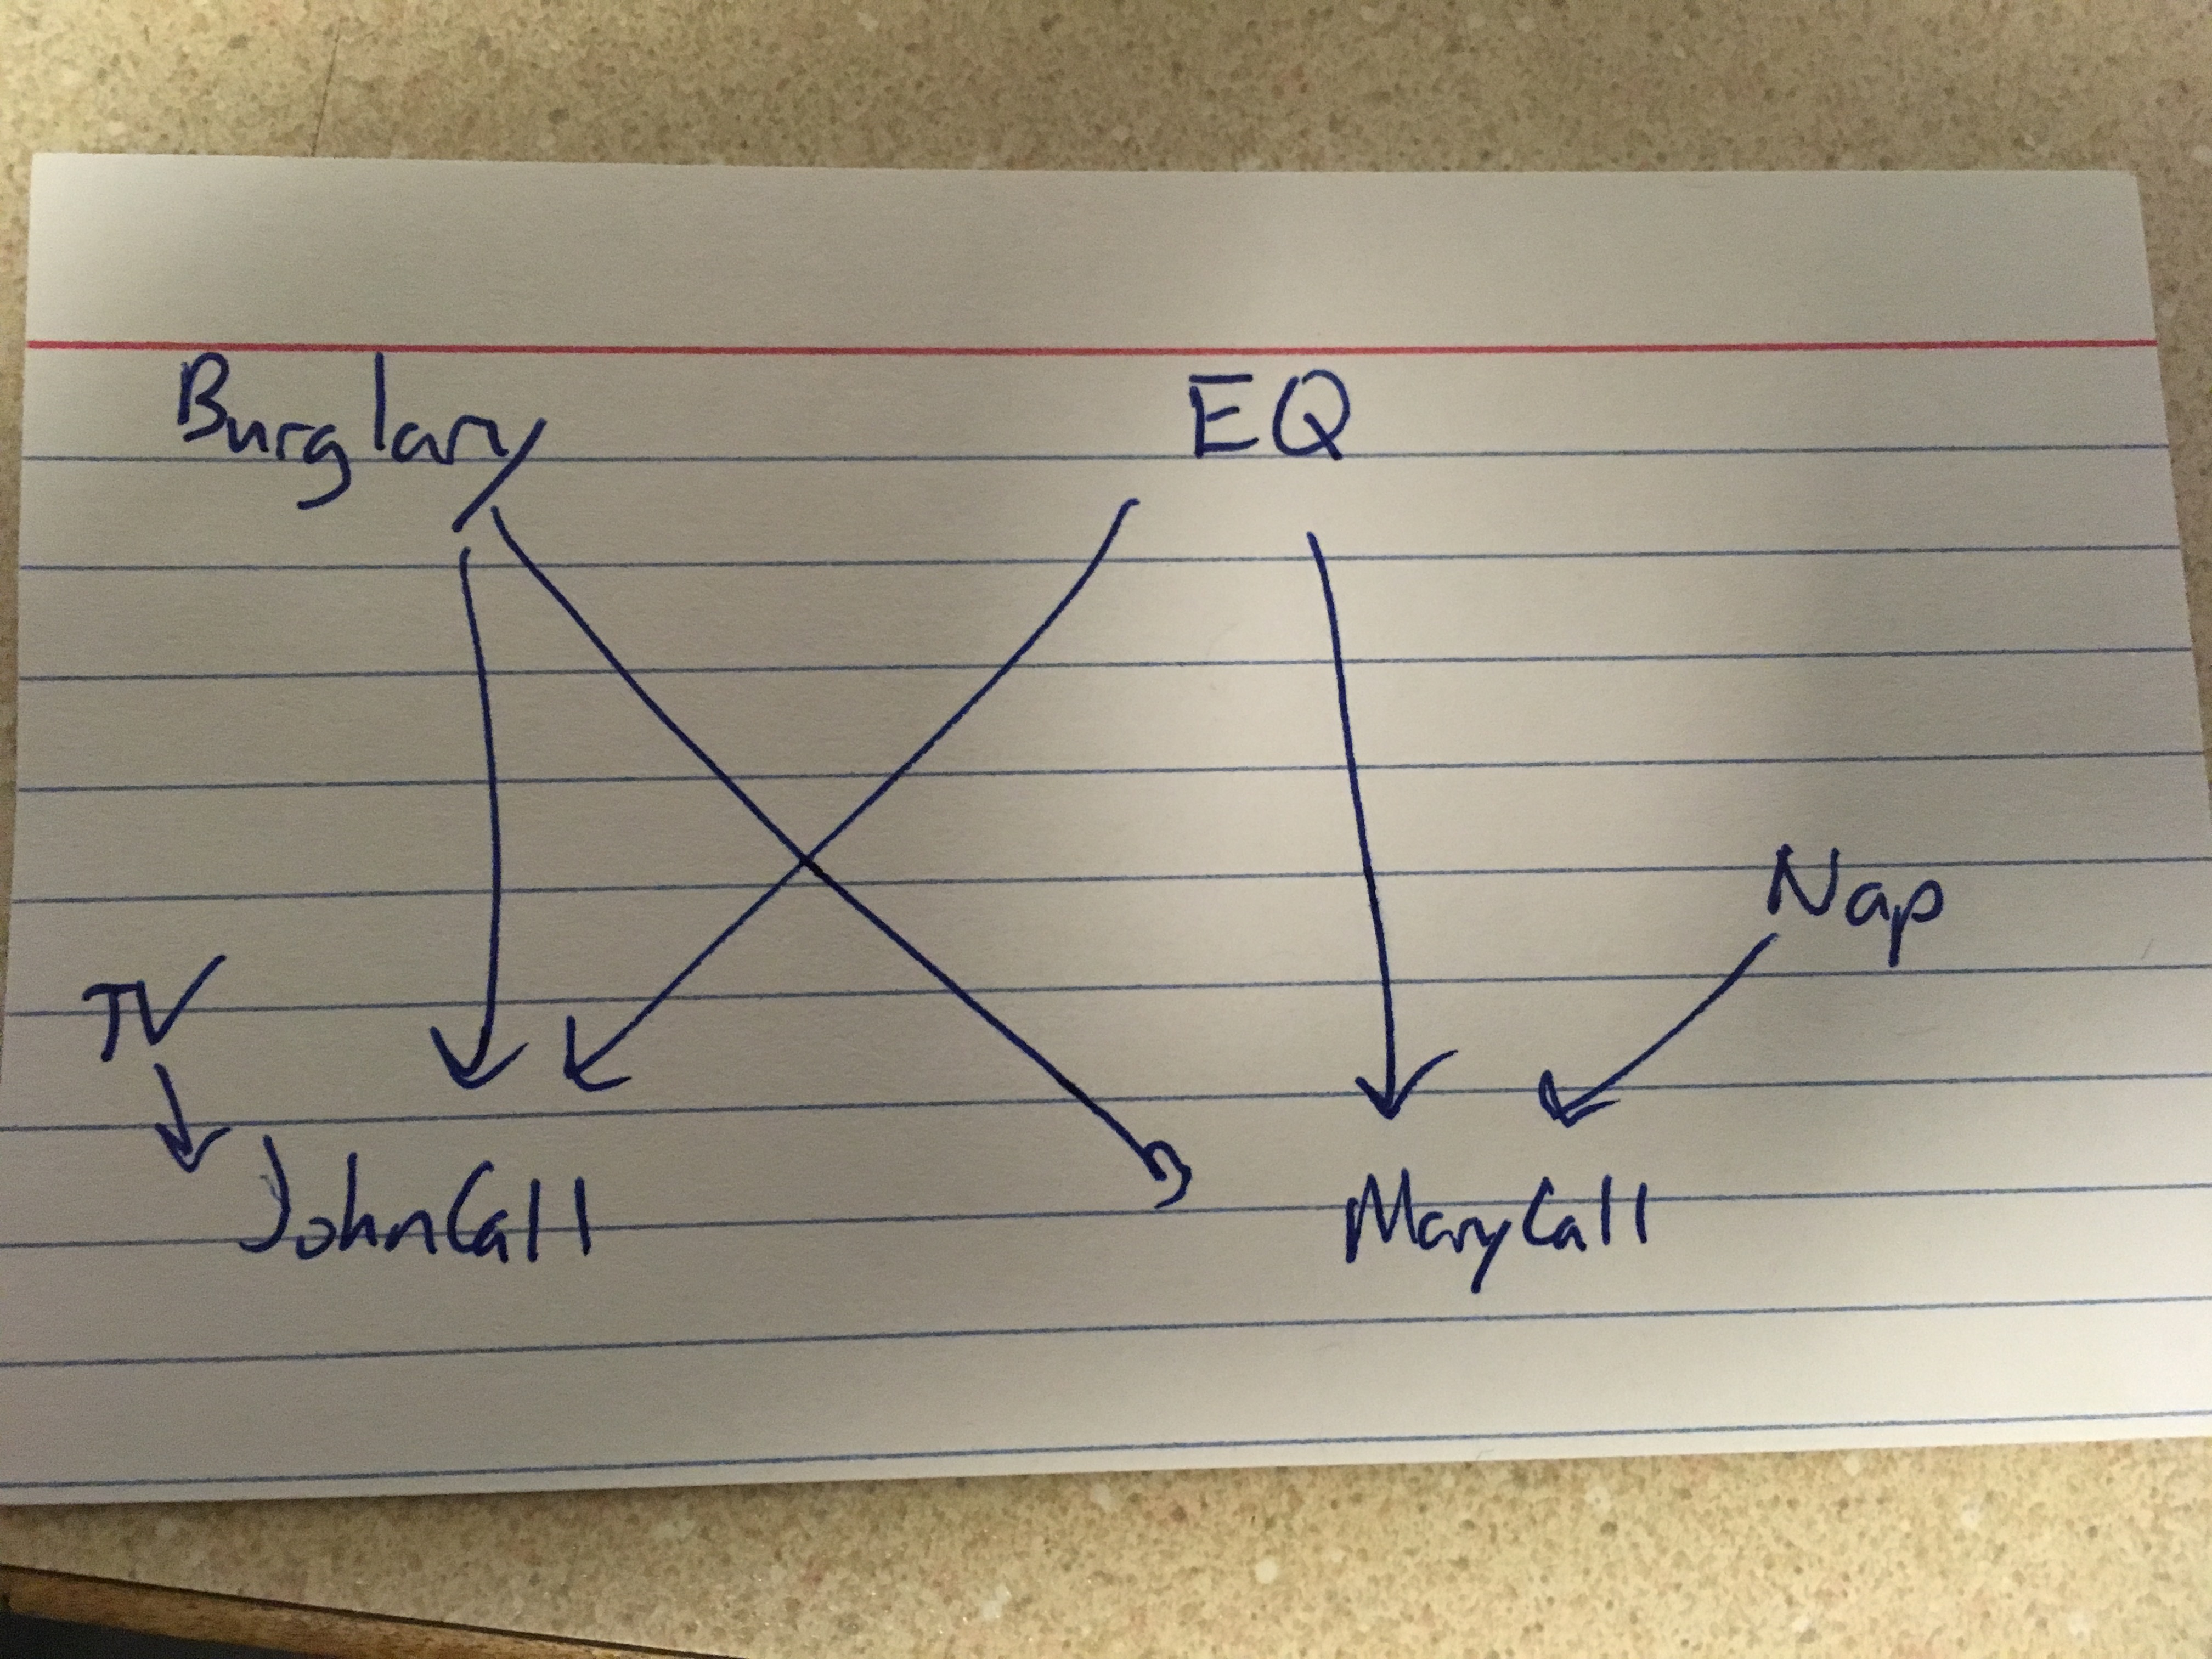 Burglary EQ
TV
Nap
JohnCall MaryCall